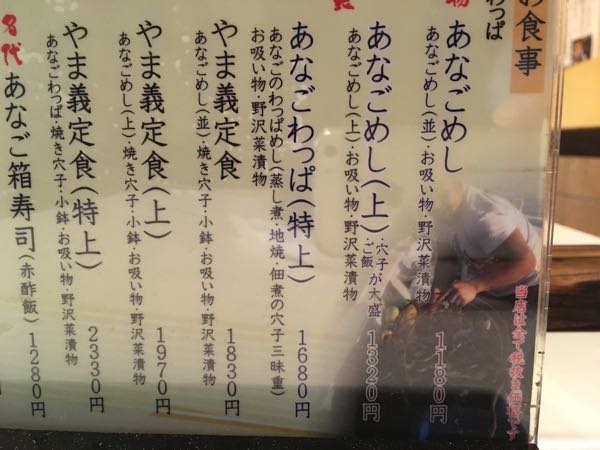 お食事
わっぱ
あなごめし
あなごめし(並)・お吸い物・野沢菜漬物
1180円
当店は全て税抜き価格です
あなごめし(上)・穴子が大盛・ご飯
あなごめし(上)・お吸い物・野沢菜漬物
1320円
あなごわっぱ(特上)
あなごのわっぱめし(蒸し煮・地焼・佃煮の穴子三昧重)
お吸い物・野沢菜漬物
1680円
やま義定食
あなごめし(並)・焼き穴子・小鉢・お吸い物・野沢菜漬物
1830円
やま義定食(上)
あなごめし(上)・焼き穴子・小鉢・お吸い物・野沢菜漬物
1970円
やま義定食(特上)
あなごわっぱ・焼き穴子・小鉢・お吸い物・野沢菜漬物
2330円
名代
あなご箱寿司(赤酢飯)
1280円